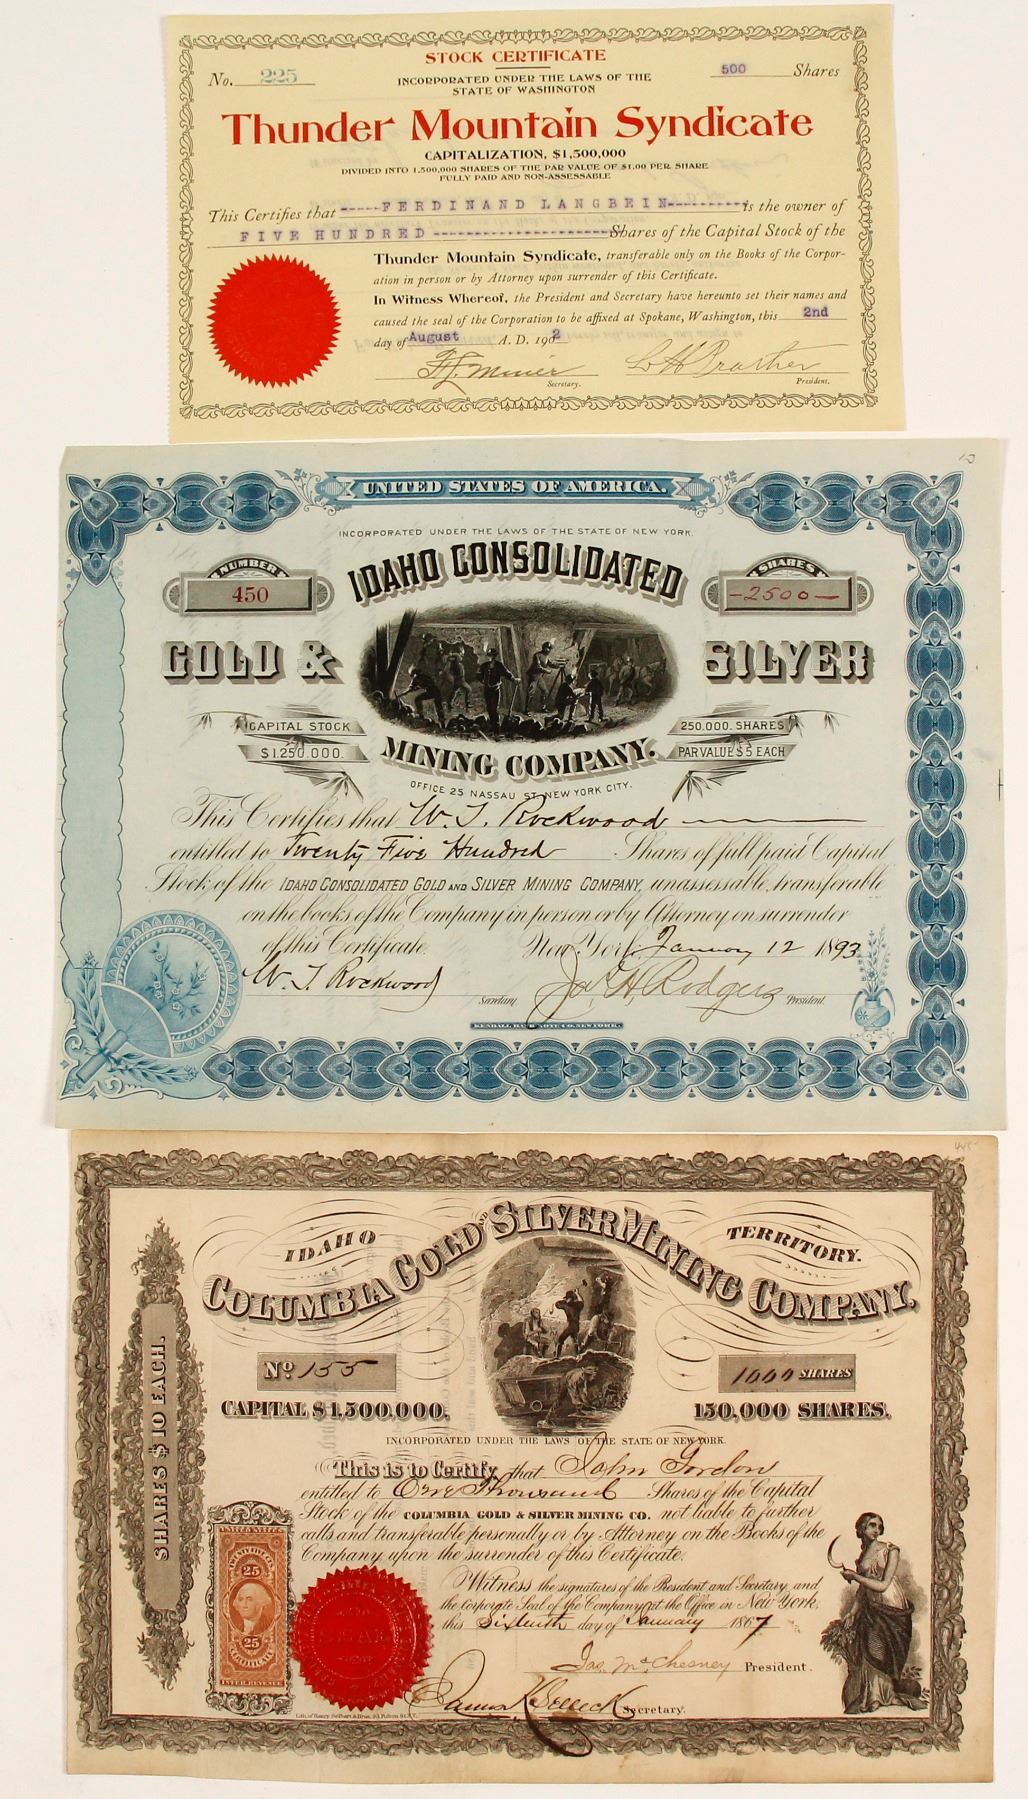 STOCK CERTIFICATE
No. 225
INCORPORATED UNDER THE LAWS OF THE
STATE OF WASHINGTON
500 Shares
Thunder Mountain Syndicate
CAPITALIZATION, $1,500,000
DIVIDED INTO 1,500,000 SHARES OF THE PAR VALUE OF $1.00 PER SHARE
FULLY PAID AND NON-ASSESSABLE
This Certifies that -----FERDINAND LANGBEIN---------is the owner of
FIVE HUNDRED --------------------Shares of the Capital Stock of the
Thunder Mountain Syndicate, transferable only on the Books of the Corpor-
ation in person or by Attorney upon surrender of this Certificate.
In Witness Whereof, the President and Secretary have hereunto set their names and
caused the seal of the Corporation to be affixed at Spokane, Washington, this 2nd
day of August A. D. 1902
Secretary.
President.
UNITED STATES OF AMERICA.
INCORPORATED UNDER THE LAWS OF THE STATE OF NEW YORK.
NUMBER
450
IDAHO CONSOLIDATED
SHARES
-2500-
GOLD & SILVER
CAPITAL STOCK
$1,250,000.
250.000. SHARES
PAR VALUE $5 EACH
MINING COMPANY.
OFFICE 25 NASSAU ST. NEW YORK CITY.
This Certifies that W. T. Rockwood
entitled to Twenty Five Hundred Shares of full paid Capital
Stock of the IDAHO CONSOLIDATED GOLD AND SILVER MINING COMPANY, unassessable, transferable
on the books of the Company in person or by Attorney on surrender
of this Certificate. New York, January 12 1893
W. T. Rockwood Secretary. Jas. H. Rodgers President.
KENDALL BANK NOTE CO. NEW YORK.
IDAHO TERRITORY.
COLUMBIA GOLD AND SILVER MINING COMPANY.
No 155
1000 SHARES
CAPITAL $1,500,000.
150,000 SHARES.
SHARES $10 EACH.
INCORPORATED UNDER THE LAWS OF THE STATE OF NEW YORK.
This is to Certify that John Gordon
entitled to One Thousand Shares of the Capital
Stock of the COLUMBIA GOLD & SILVER MINING CO. not liable to further
calls and transferable personally or by Attorney on the Books of the
Company upon the surrender of this Certificate.
Witness the signatures of the President and Secretary and
the Corporate Seal of the Company at the Office in New York,
this Sixteenth day of January 1867
Jas. McChesney President.
Secretary.
UNITED STATES
25
25
CERTIFICATE
INTER. REVENUE